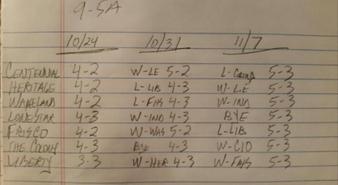 9-5A
10/24 10/31 11/7
CENTENNIAL 4-2 W-LE 5-2 L- 5-3
HERITAGE 4-2 L-LIB 4-3 W-LE 5-3
WAKELAND 4-2 L-FRIS 4-3 W-IND 5-3
LONESTAR 4-3 W-IND 4-3 BYE 5-3
FRISCO 4-2 W-WAK 5-2 L-LIB 5-3
THE COLONY 4-3 BYE 4-3 W- 5-3
LIBERTY 3-3 W-HER 4-3 W-FRIS 5-3